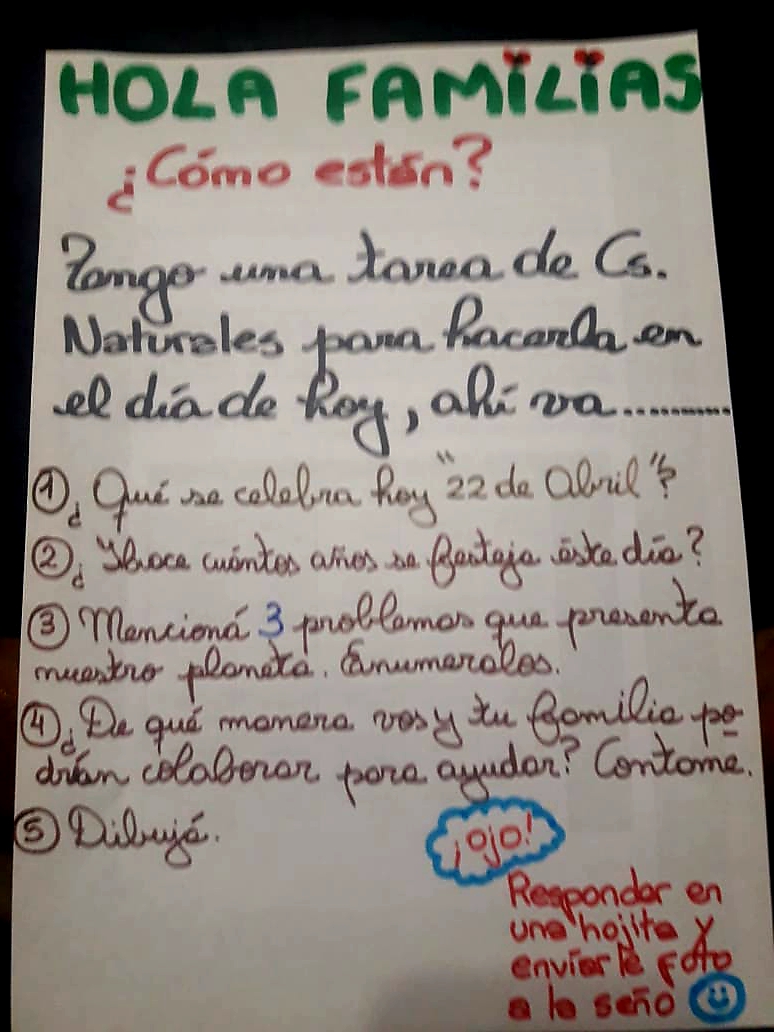 HOLA FAMILIAS
¿Cómo están?
Tengo una tarea de Cs.
Naturales para hacerla en
el día de hoy, ahí va..........
1) ¿Qué se celebra hoy "22 de Abril"?
2) ¿Hace cuántos años se festeja éste día?
3) Mencioná 3 problemas que presenta
nuestro planeta. Enumeralos.
4) ¿De qué manera vos y tu familia po
drían colaborar para ayudar? Contame.
5) Dibujá.
¡OJO!
Responder en
una hojita y
enviarle foto
a la seño